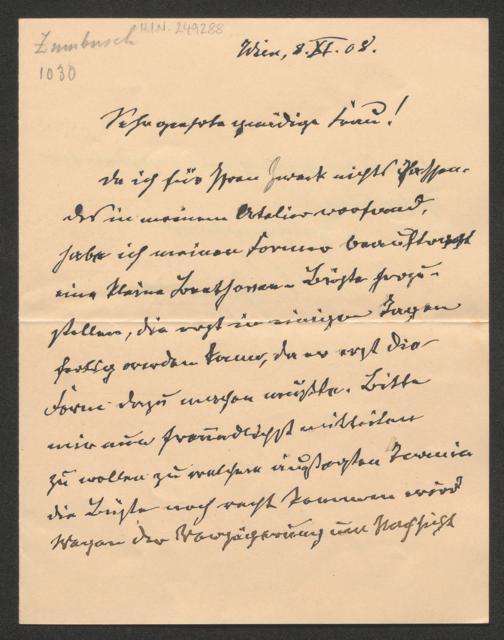 Zumbusch H.I.N. 249288
1030
Wien, 8. XI. 08.
Sehr geehrte gnädige Frau!
Da ich für Ihren Zweck nichts Passen-
des in meinem Atelier vorfand,
habe ich meinen Former beauftragt
eine kleine Beethoven-Büste herzu-
stellen, die erst in einigen Tagen
fertig werden kann, da er erst die
Form dazu machen mußte. Bitte
mir nun freundlichst mitteilen
zu wollen zu welchem äußersten Termin
die Büste noch recht kommen wird
Wegen der Verzögerung um Nachsicht